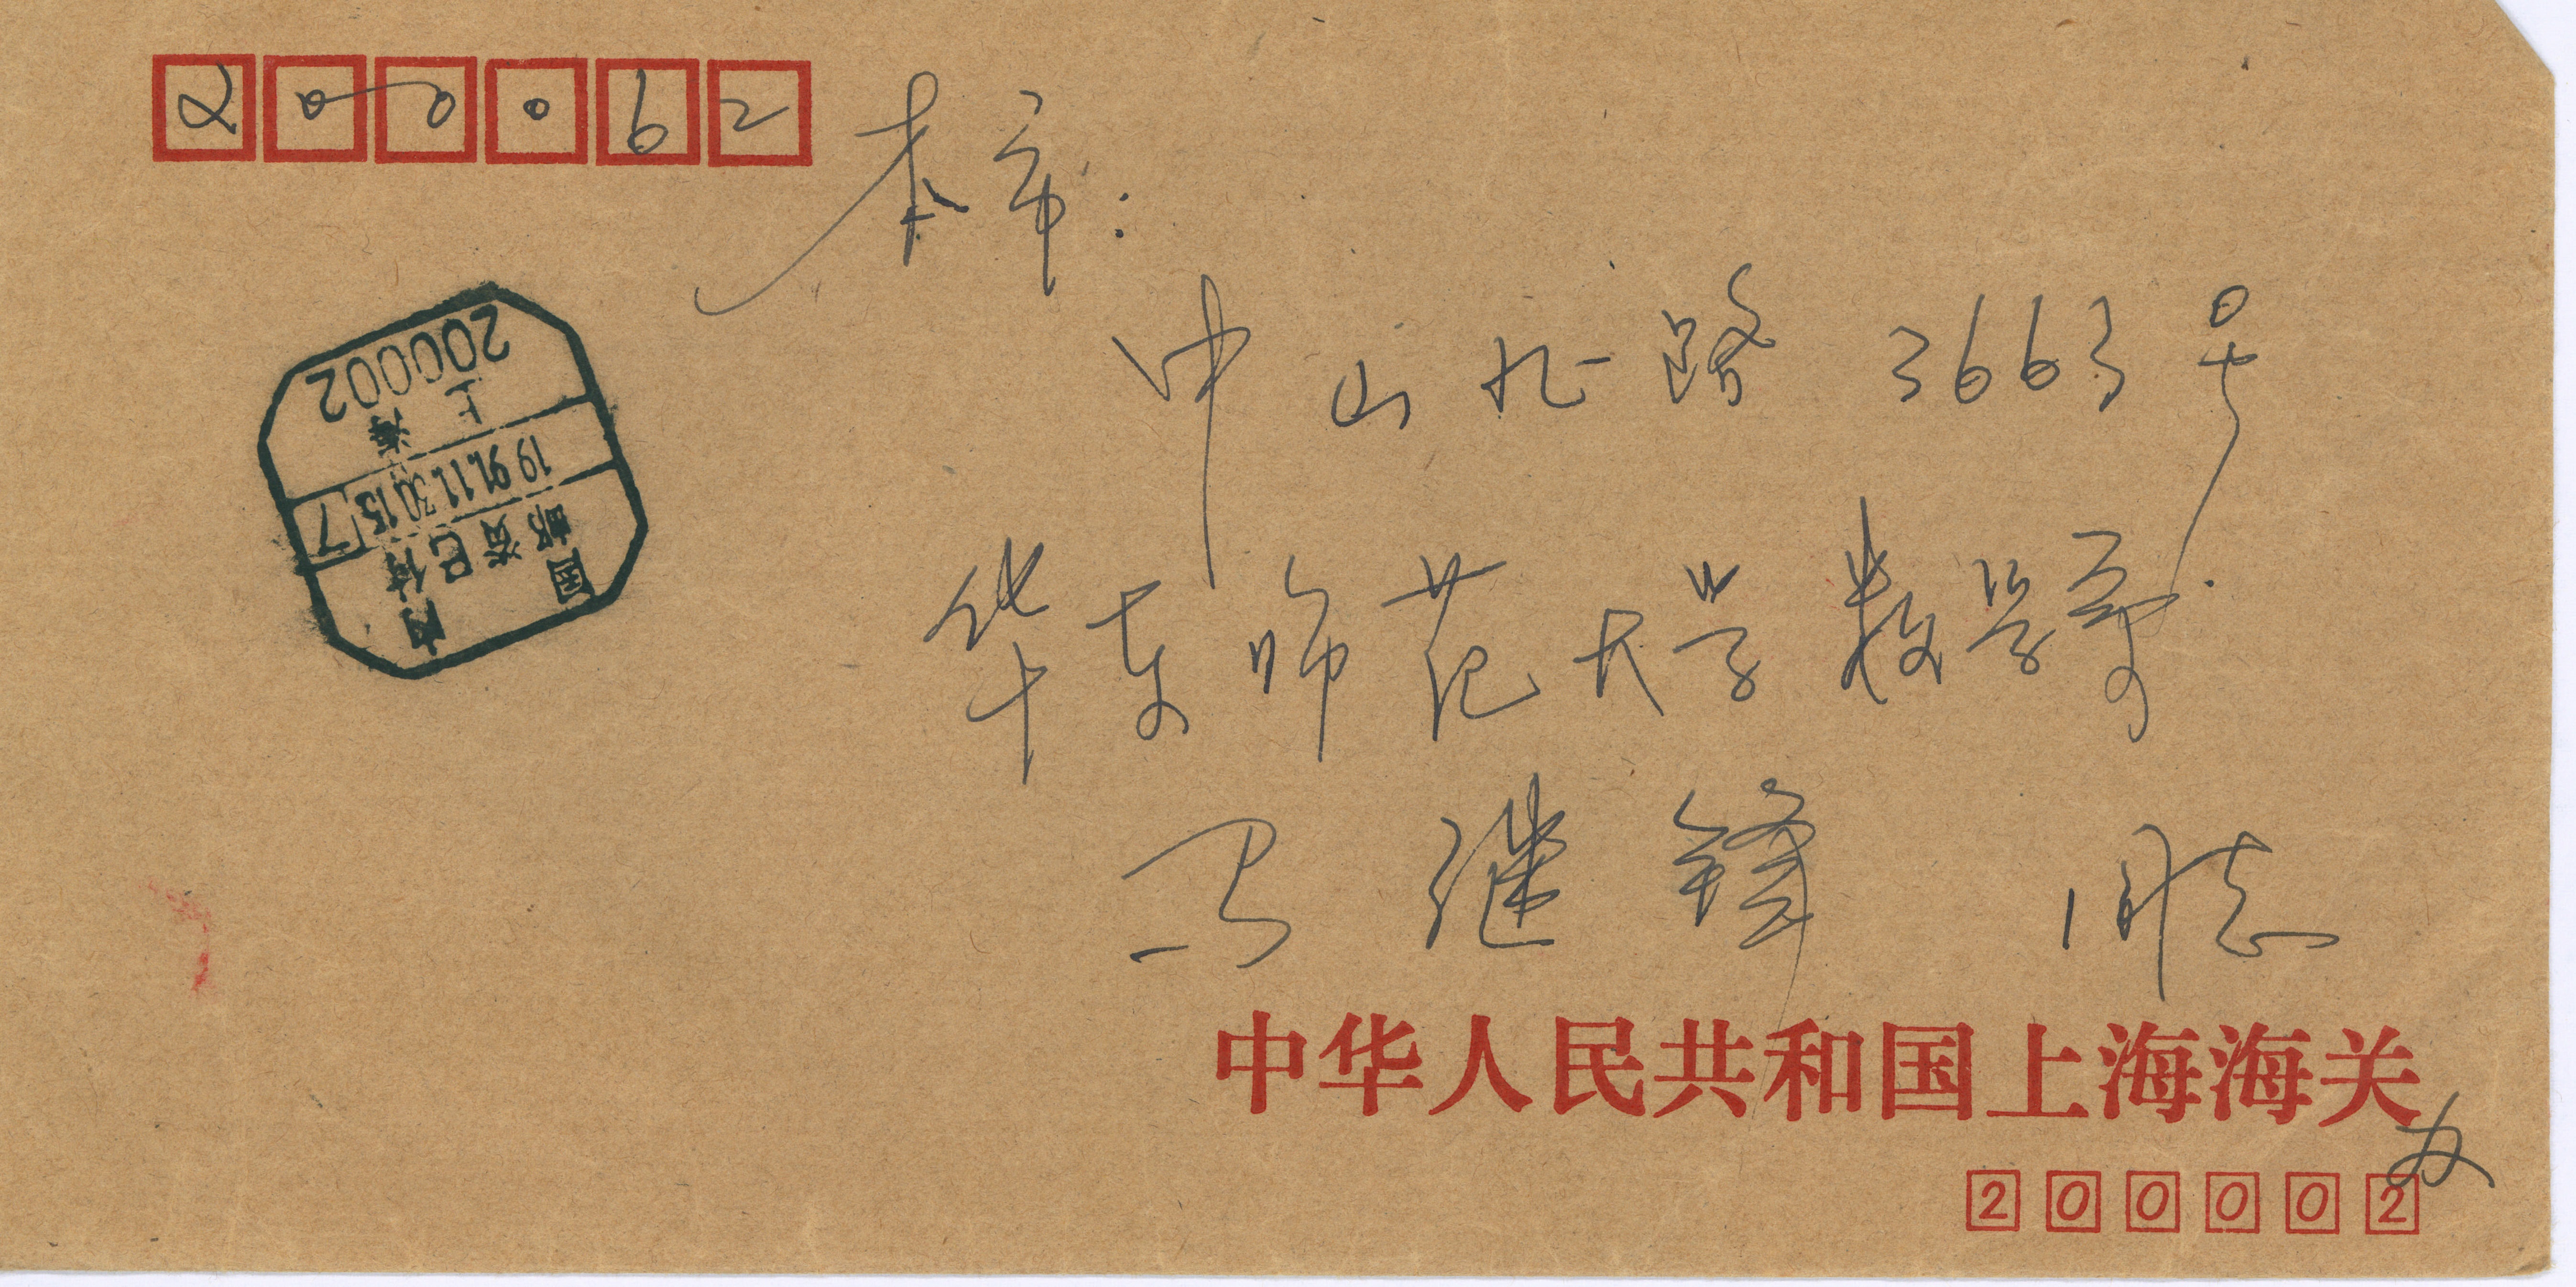 200062
本市:
中山北路 3663号
华东师范大学数学系
马继锋 同志
中华人民共和国上海海关
200002
上海
200002
1991.11.30.15 7
国内
邮资已付